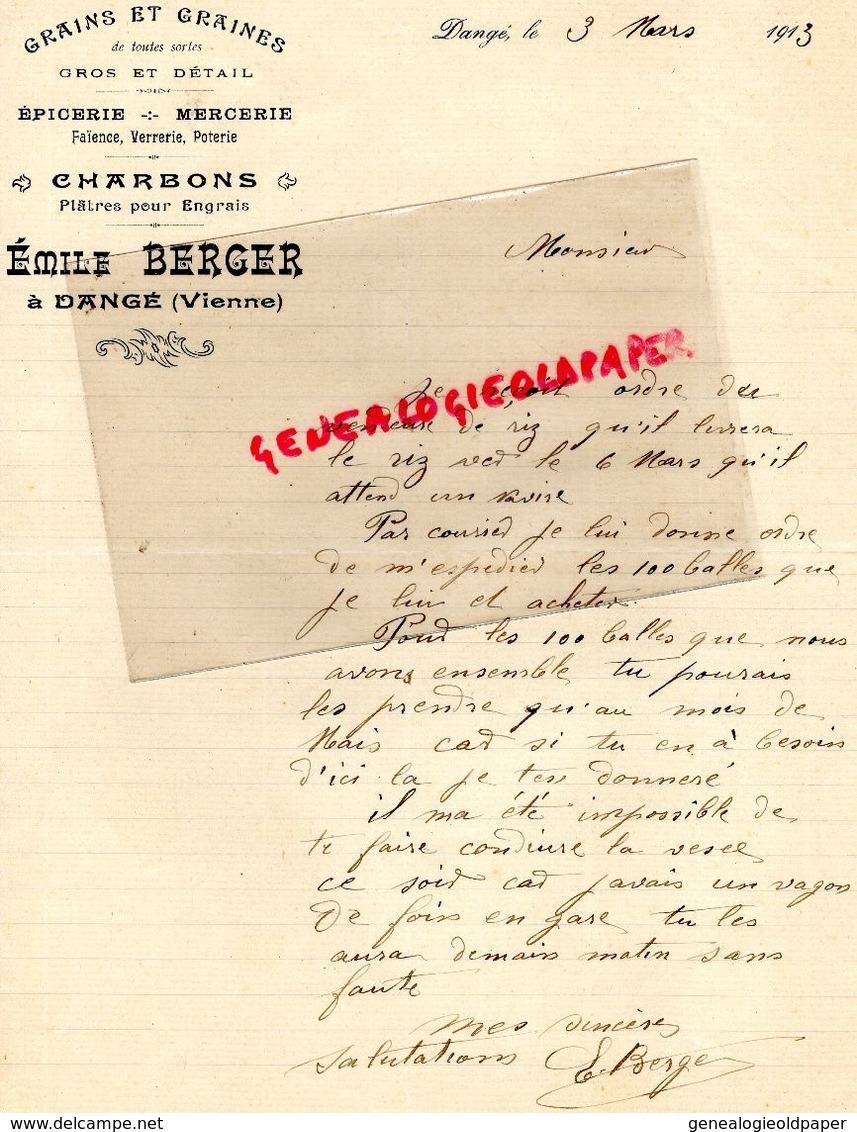 GRAINS ET GRAINES
de toutes sortes
GROS ET DÉTAIL
ÉPICERIE -:- MERCERIE
Faïence, Verrerie, Poterie
CHARBONS
Plâtres pour Engrais
ÉMILE BERGER
à DANGÉ (Vienne)
Dangé, le 3 Mars 1913
Monsieur
GENEALOGIEOLDPAPER.
Je reçoit ordre de
vendeure de riz qu'il livrera
le riz ver le 6 Mars qu'il
attend un navire
Par courrier je lui donne ordre
de m'espedier les 100 balles que
je lui et acheter.
Pour les 100 balles que nous
avons ensemble tu pourais
les prendre qu'au mois de
Mais car si tu en à besoin
d'ici la je ten donneré
il ma été impossible de
te faire conduire la vesce
ce soir car javais un vagon
de foin en gare tu les
aura demain matin sans
faute
Mes sincères
salutations E. Berger
delcampe.net
genealogieoldpaper